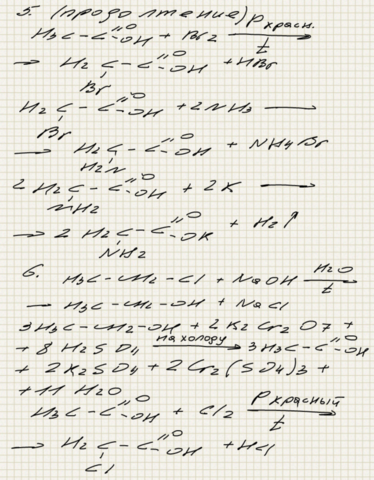 5. (продолжение)
H₃C – C(=O)–OH + Br₂ —P красн., t→
→ H₂C(Br) – C(=O)–OH + HBr
H₂C(Br) – C(=O)–OH + 2NH₃ →
→ H₂C(H₂N) – C(=O)–OH + NH₄Br
2 H₂C(NH₂) – C(=O)–OH + 2K →
→ 2 H₂C(NH₂) – C(=O)–OK + H₂↑
6. H₃C – CH₂ – Cl + NaOH —H₂O, t→
→ H₃C – CH₂ – OH + NaCl
3H₃C – CH₂ – OH + 2K₂Cr₂O₇ +
+ 8H₂SO₄ —на холоду→ 3H₃C – C(=O)–OH
+ 2K₂SO₄ + 2Cr₂(SO₄)₃ +
+ 11H₂O
H₃C – C(=O)–OH + Cl₂ —P красный, t→
→ H₂C(Cl) – C(=O)–OH + HCl